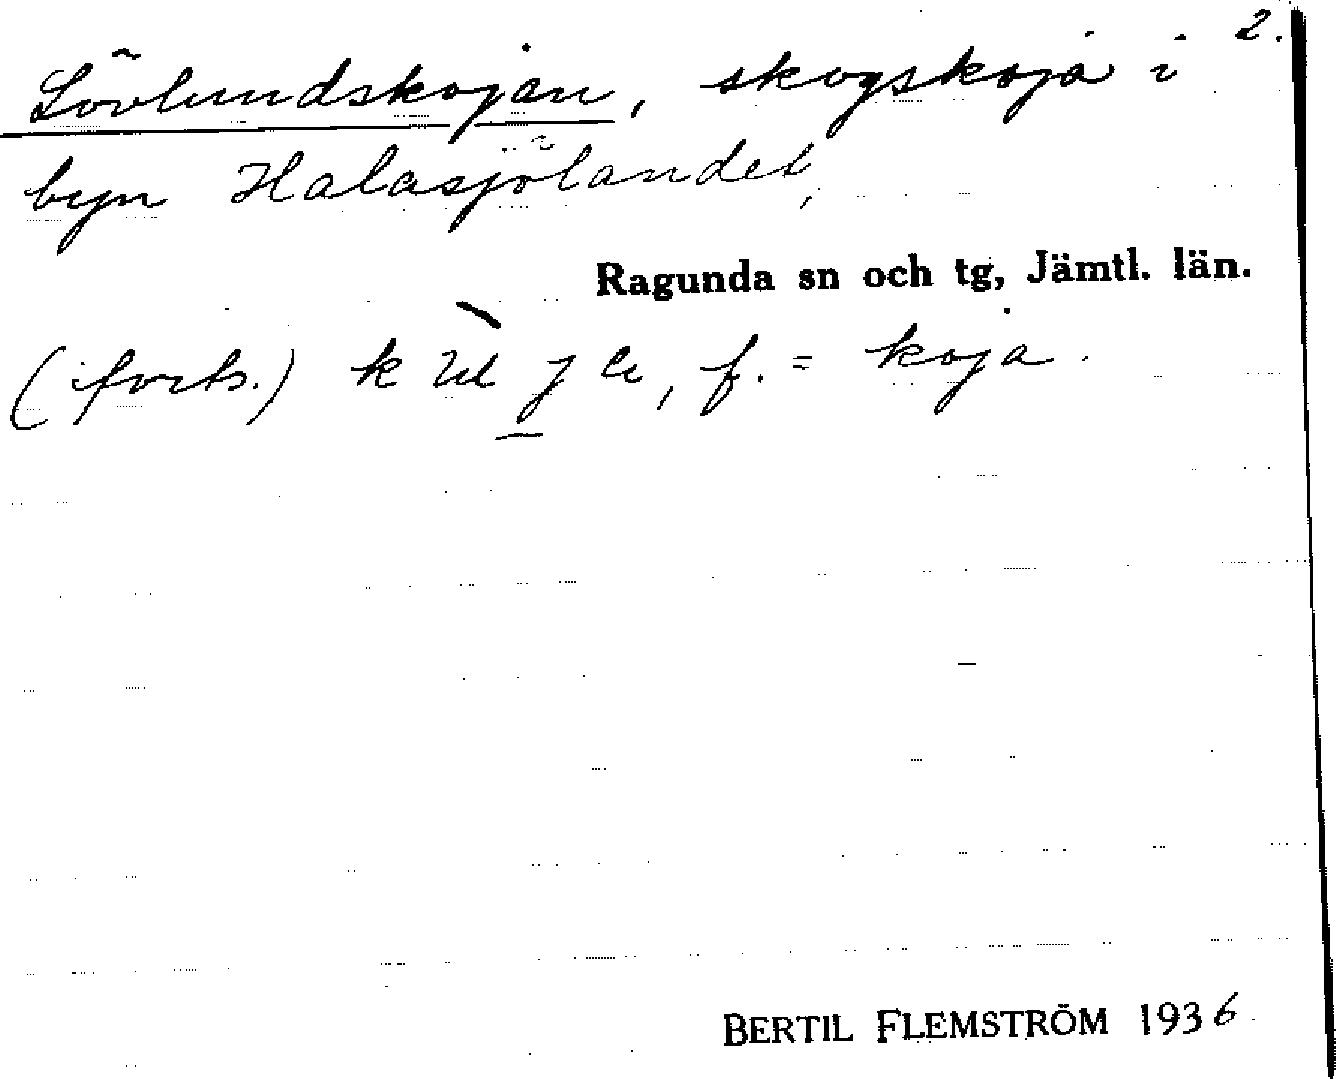 2.
Lövlundskojan, skogskoja i
byn Halasjölandet,
Ragunda sn och tg, Jämtl. län.
(forts.) k f. = koja.
BERTIL FLEMSTRÖM 1936